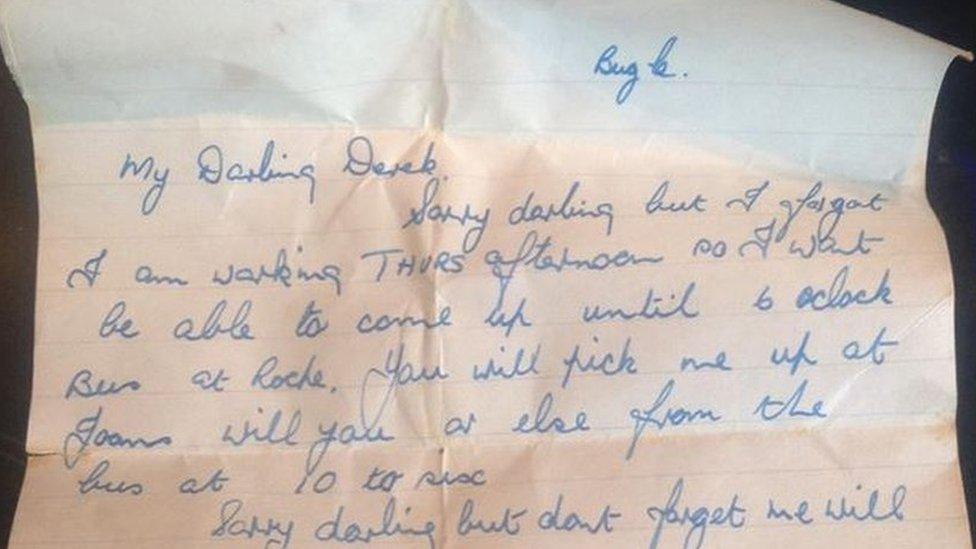 Bugle.
My Darling Derek.
Sorry darling but I forgot
I am working THURS afternoon so I wont
be able to come up until 6 oclock
Bus at Roche. You will pick me up at
Joans will you or else from the
bus at 10 to six
Sorry darling but dont forget me will